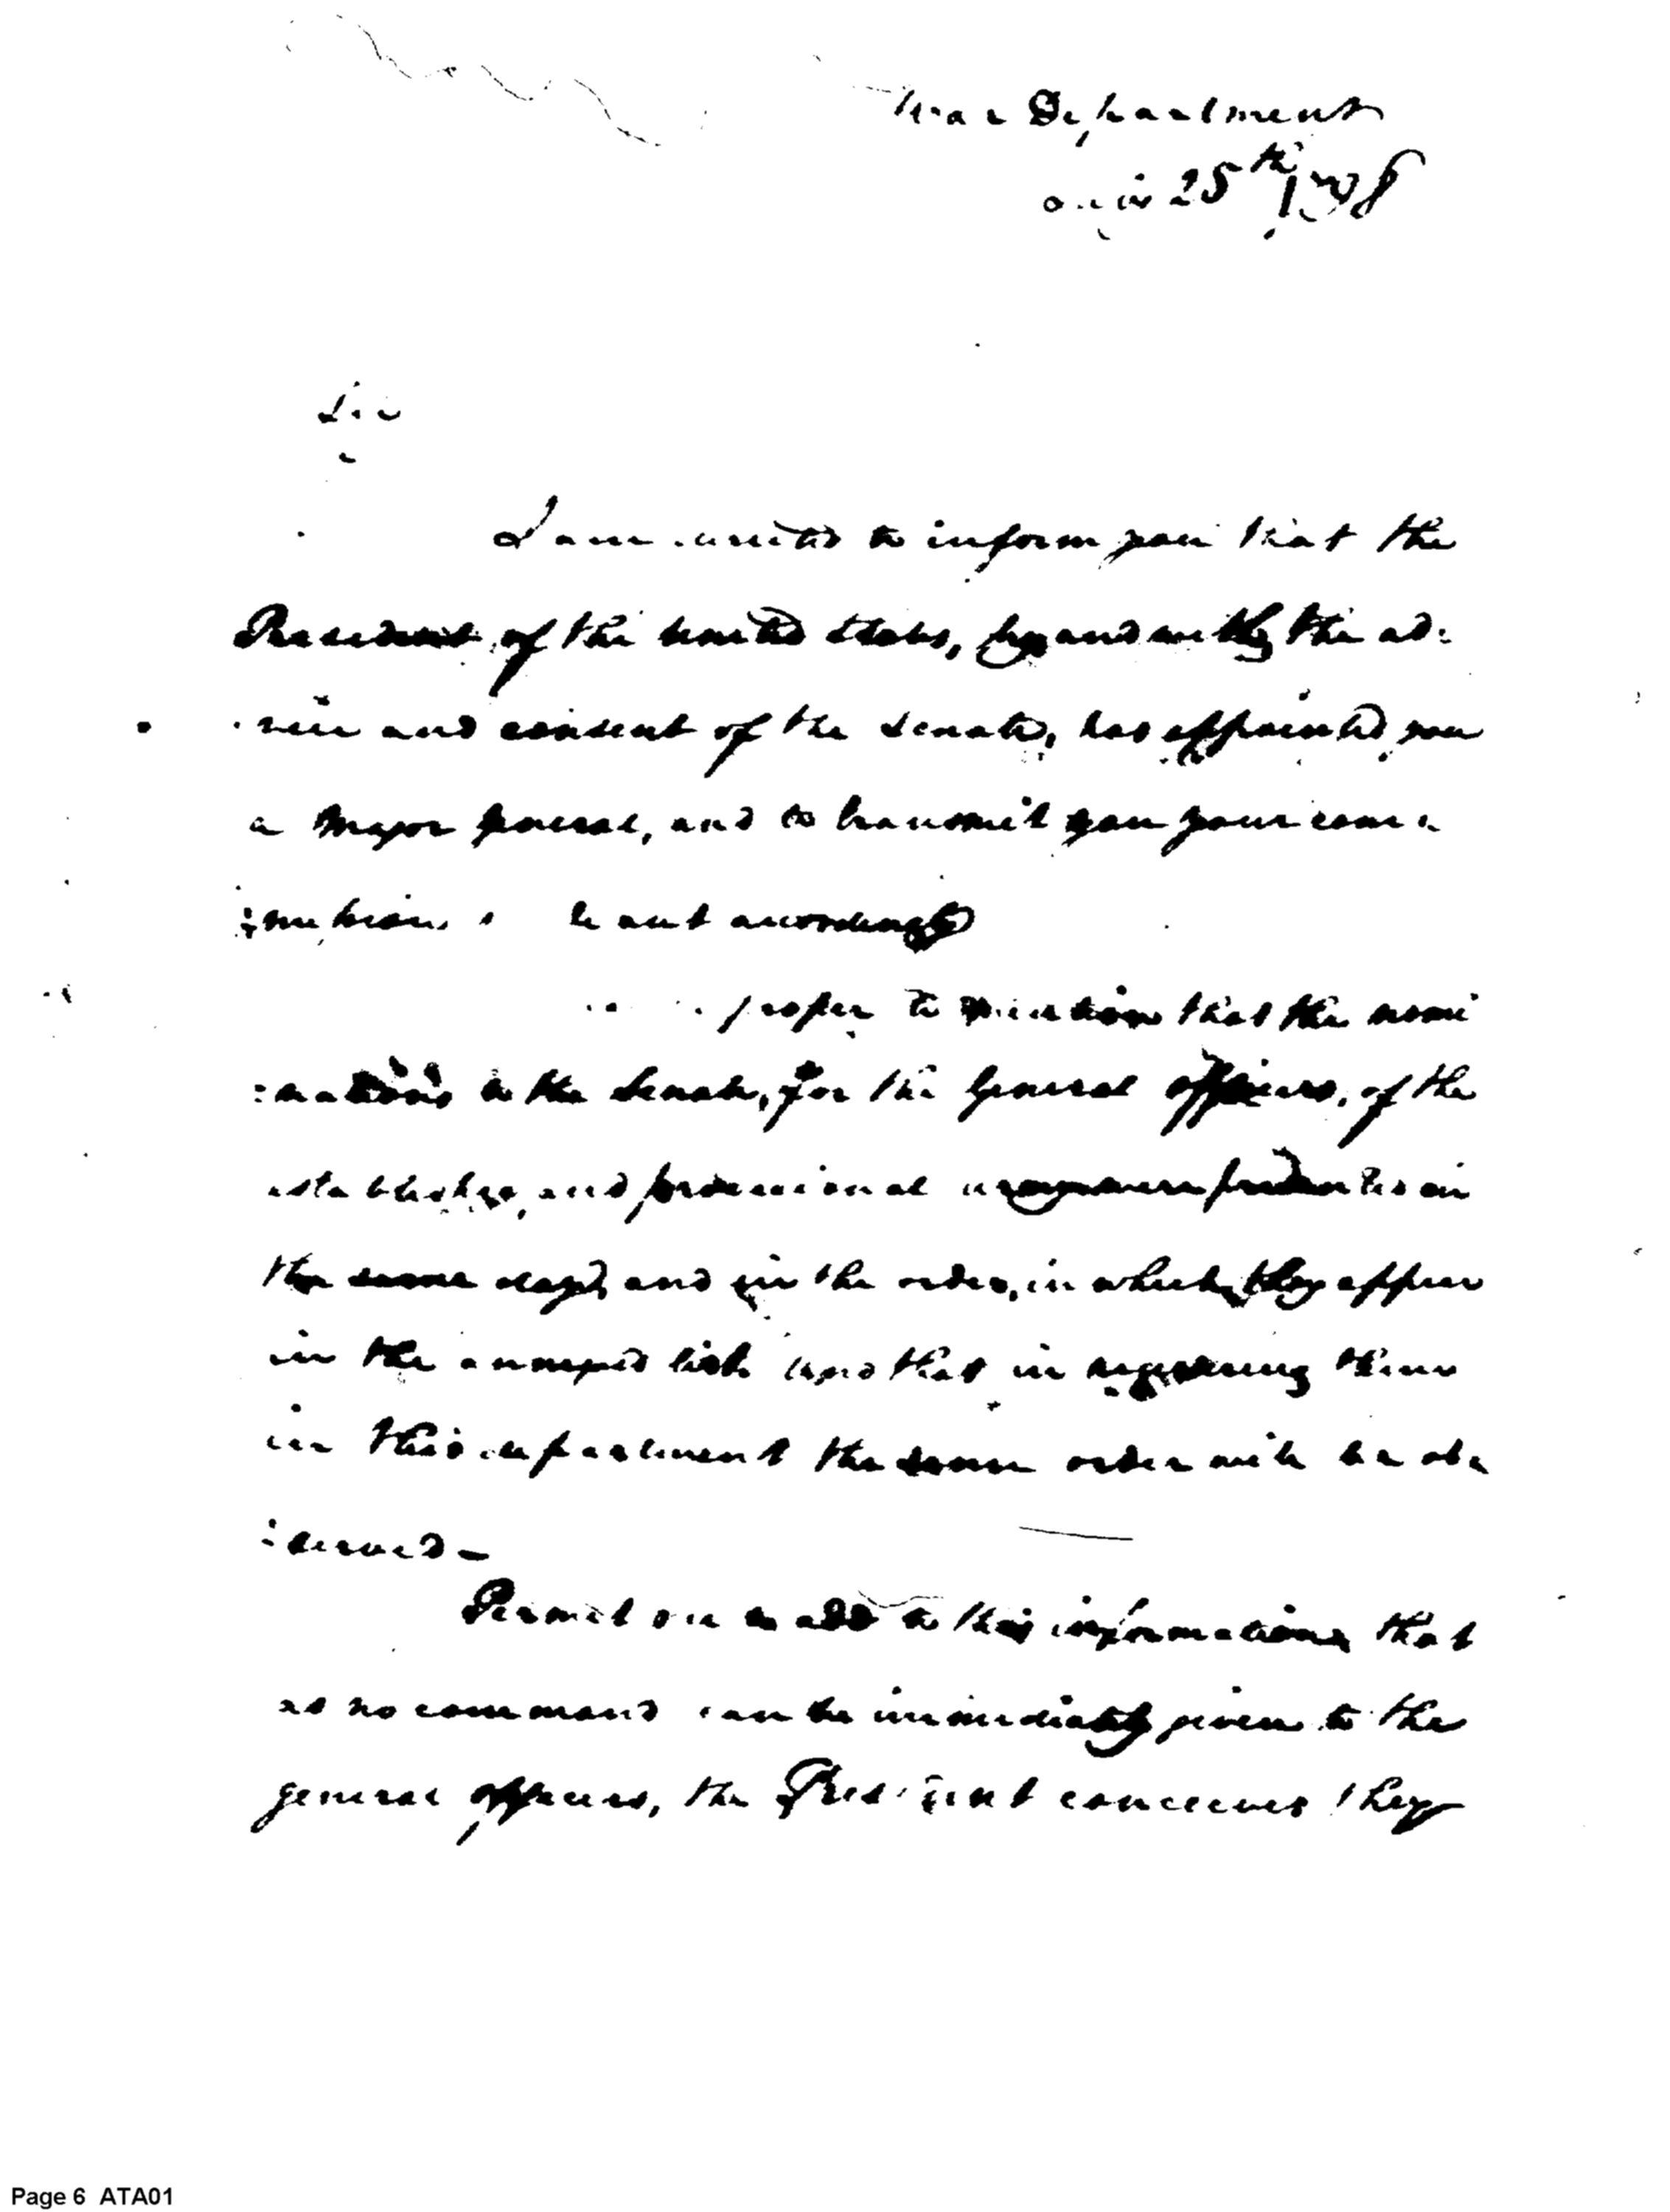 War Department
25th 1798
Sir
I am directed to inform you that the
President of the United States, by and with the ad:
:vice and consent of the Senate, has appointed you
a Major General, and to transmit you your com:
:mission
proper to mention that the nomi
:nations to the Senate, for the General officers, of the
established, and provisional army
the same days and in the order, in which they appear
in the annexed list and that in registering them
in this department the same order will be ob:
:served—
Permit me to add to this information, that
as no command can be immediately given to the
general officers, the President conceives they
Page 6 ATA01